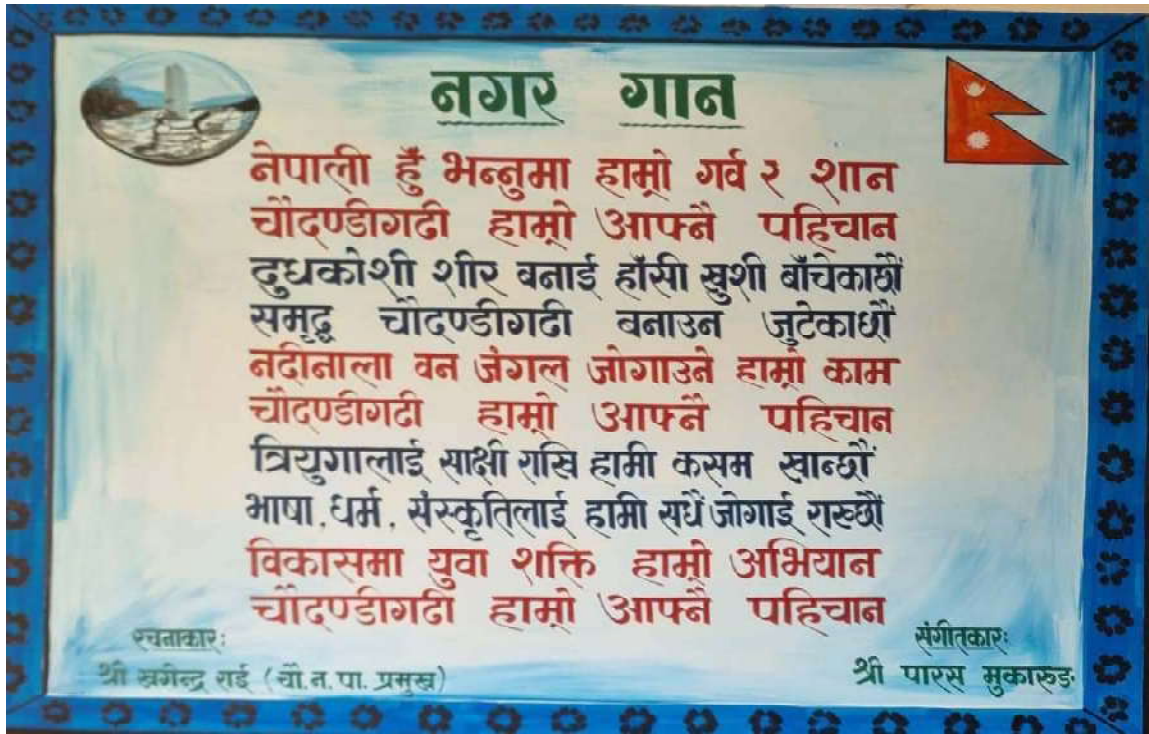 नगर गान
नेपाली हुँ भन्नुमा हाम्रो गर्व र शान
चौदण्डीगढी हाम्रो आफ्नै पहिचान
दुधकोशी शीर बनाई हाँसी खुशी बाँचेकाछौं
समृद्ध चौदण्डीगढी बनाउन जुटेकाछौं
नदीनाला वन जंगल जोगाउने हाम्रो काम
चौदण्डीगढी हाम्रो आफ्नै पहिचान
त्रियुगालाई साक्षी राखि हामी कसम खान्छौं
भाषा, धर्म, संस्कृतिलाई हामी सधैं जोगाई राख्छौं
विकासमा युवा शक्ति हाम्रो अभियान
चौदण्डीगढी हाम्रो आफ्नै पहिचान
रचनाकारः
श्री खगेन्द्र राई (चौ.न.पा. प्रमुख)
संगीतकारः
श्री पारस मुकारुङ